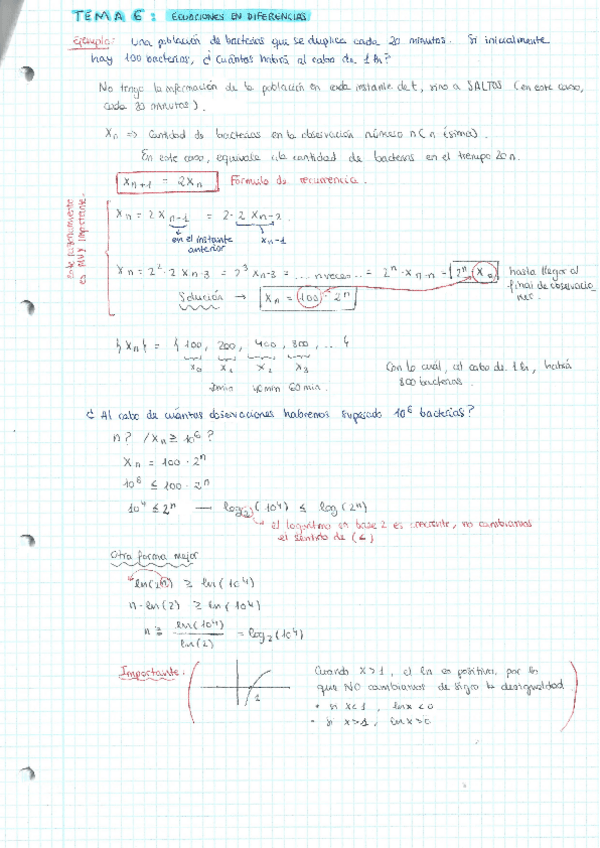 TEMA 6: ECUACIONES EN DIFERENCIAS
Ejemplo: Una población de bacterias que se duplica cada 20 minutos. Si inicialmente
hay 100 bacterias, ¿Cuántas habrá al cabo de 1h?
No tengo la información de la población en cada instante de t, sino a SALTOS (en este caso,
cada 20 minutos).
Xn => Cantidad de bacterias en la observación número n (n ísima).
En este caso, equivale a la cantidad de bacterias en el tiempo 20n.
Xn+1 = 2Xn Fórmula de recurrencia.
Este razonamiento es MUY importante.
Xn = 2 Xn-1 = 2·2 Xn-2
en el instante anterior
Xn-1
Xn = 2²·2 Xn-3 = 2³ Xn-3 = ... n veces ... = 2ⁿ · Xn-n = 2ⁿ X0 hasta llegar al
final de observaciones.
Solución → Xn = 100 · 2ⁿ
{Xn} = { 100, 200, 400, 800, .. }
X0 X1 X2 X3
20min 40min 60min
Con lo cuál, al cabo de 1h, habrá
800 bacterias.
¿ Al cabo de cuántas observaciones habremos superado 10⁶ bacterias?
n? / Xn ≥ 10⁶?
Xn = 100 · 2ⁿ
10⁶ ≤ 100 · 2ⁿ
10⁴ ≤ 2ⁿ — log2(10⁴) ≤ log(2ⁿ)
el logaritmo en base 2 es creciente, no cambiamos
el sentido de (≤)
Otra forma mejor
ln(2ⁿ) ≥ ln(10⁴)
n·ln(2) ≥ ln(10⁴)
n ≥ ln(10⁴) / ln(2) = log2(10⁴)
Importante:
1
Cuando x>1, el ln es positivo, por lo
que NO cambiamos de signo la desigualdad
• si x<1, lnx<0
• si x>1, lnx>0